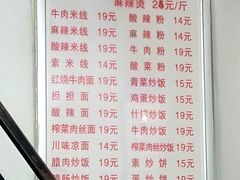 麻辣烫 28元/斤
牛肉米线 19元 酸辣粉 14元
麻辣米线 19元 牛肉粉 19元
酸辣米线 19元 酸菜粉 19元
素米线 14元 青菜炒饭 15元
红烧牛肉面 19元 鸡蛋炒饭 15元
担担面 19元 什锦炒饭 19元
酸辣面 19元 牛肉炒饭 19元
榨菜肉丝面 19元 榨菜肉丝炒饭 19元
川味凉面 14元 素炒饼 15元
腊肉炒饭 19元